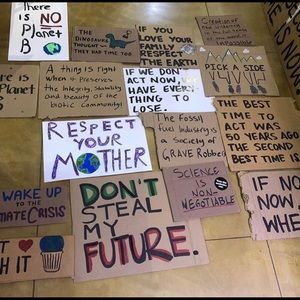 There
is NO
Planet
B
THE
DINOSAURS
THOUGHT
THEY HAD TIME TOO.
IF YOU
LOVE YOUR
FAMILY
RESPECT
THE EARTH
is
Impossible
PICK A SIDE
ere is
Planet
B
A thing is
right when it Preserves
the Integrity, Stability
and beauty of the
biotic Community!
IF WE DON'T
ACT NOW, WE
HAVE EVERY-
THING TO
LOSE.
THE BEST
TIME TO
ACT WAS
50 YEARS AGO
THE SECOND
BEST TIME IS
RESPECT
YOUR
MOTHER
The Fossil
fuel Industry is
a Society of
GRAVE Robbers
WAKE UP
TO THE
MATE CRISIS
DON'T
STEAL
MY
FUTURE.
SCIENCE IS
NON-
NEGOTIABLE
IF NO
NOW
WHE
T
H IT